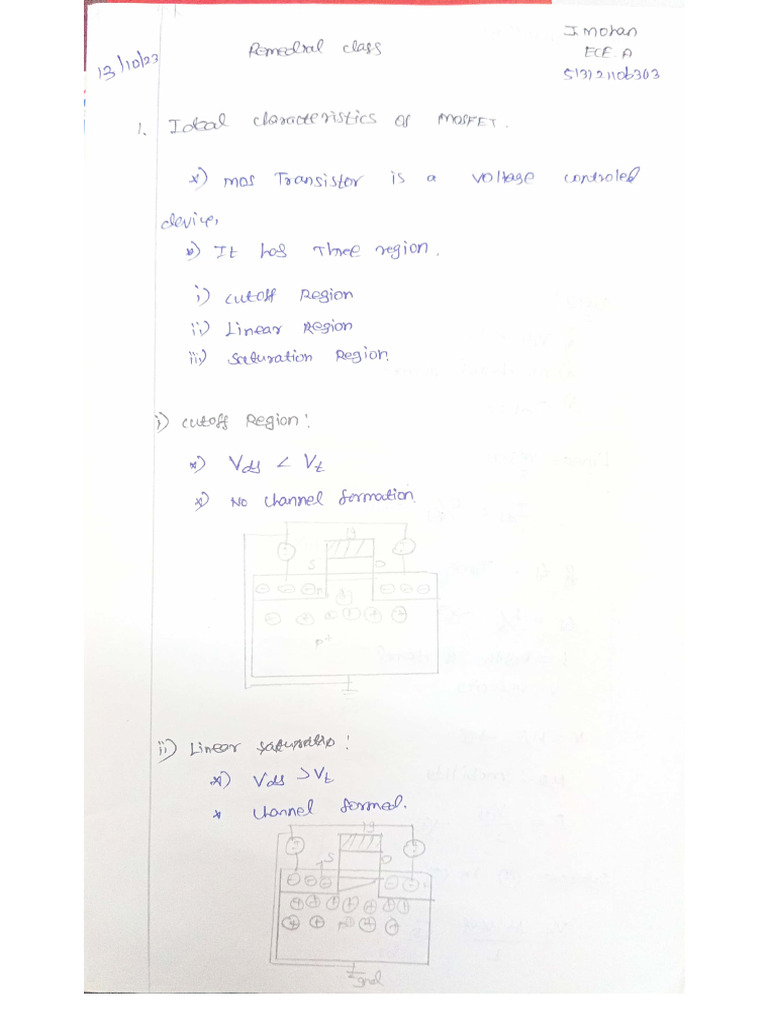 13/10/23
Remedial class
J. Mohan
ECE. A
513121106303
1. Ideal characteristics of MOSFET.
*) MOS Transistor is a voltage controled
device,
*) It has three region.
i) Cutoff Region
ii) Linear Region
iii) Saturation Region.
i) Cutoff Region:
*) Vds < Vt
*) No channel formation.
g
S
D
P+
ii) Linear
*) Vds > Vt
* channel formed.
g
S
D
gnd